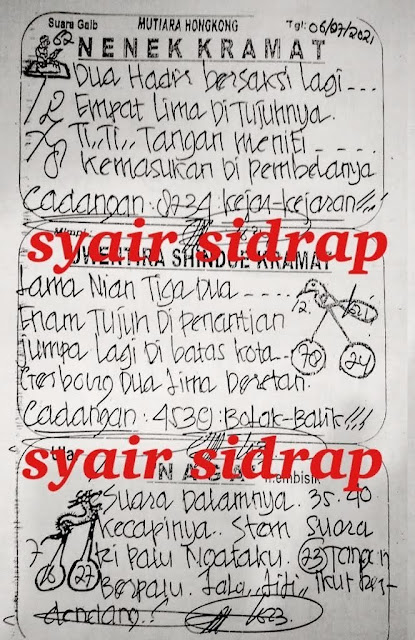 Suara Gaib MUTIARA HONGKONG Tgl: 06/07/2021
62 NENEK KRAMAT
Dua Hadir bersaksi lagi....
12 Empat Lima Di Tujuhnya.
78 Ti,, Ti,, Tangan meniti.....
Kemasukan Di pembelanya
Cadangan: 8724: kejar-kejaran!!!
syair sidrap
SHINDUE KRAMAT
Lama Nian Tiga Dua.....
Enam Tujuh Di Penantian
Jumpa Lagi Di batas kota..
70 24
Gerbong Dua Lima Deretan.
Cadangan: 4530: Bolak-Balik!!!
syair sidrap
Suara Dalamnya. 35. 40
Kecapinya.. Stem Suara
7 27
23 Tangan